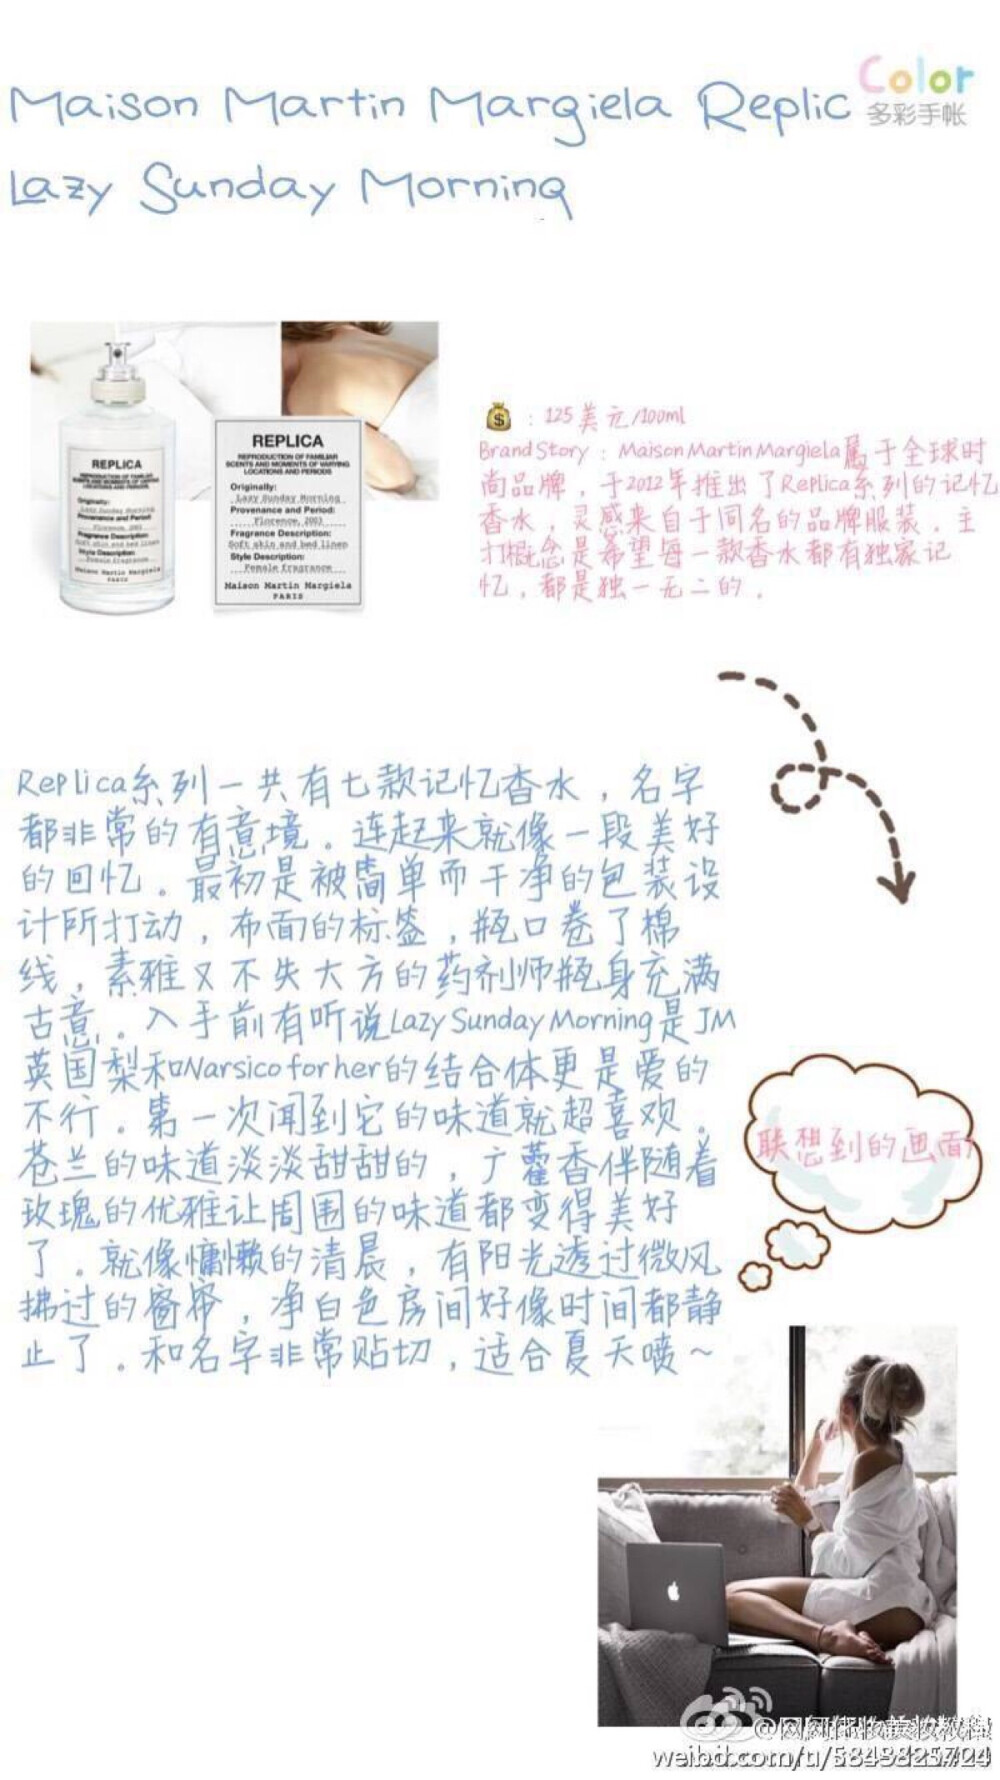 Color
多彩手帐
Maison Martin Margiela Replic
Lazy Sunday Morning
REPLICA
REPRODUCTION OF FAMILIAR
SCENTS AND MOMENTS OF VARYING
LOCATIONS AND PERIODS
Originally:
Lazy Sunday Morning
Provenance and Period:
Florence, 2003
Fragrance Description:
Soft skin and bed linen
Style Description:
Female fragrance
Maison Martin Margiela
PARIS
REPLICA
REPRODUCTION OF FAMILIAR
SCENTS AND MOMENTS OF VARYING
LOCATIONS AND PERIODS
Originally:
Lazy Sunday Morning
Provenance and Period:
Florence, 2003
Fragrance Description:
Soft skin and bed linen
Style Description:
Female fragrance
Maison Martin Margiela
PARIS
：125美元/100ml
Brand Story：Maison Martin Margiela属于全球时
尚品牌，于2012年推出了Replica系列的记忆
香水，灵感来自于同名的品牌服装，主
打概念是希望每一款香水都有独家记
忆，都是独一无二的．
Replica系列一共有七款记忆香水，名字
都非常的有意境。连起来就像一段美好
的回忆。最初是被简单而干净的包装设
计所打动，布面的标签，瓶口卷了棉
线，素雅又不失大方的药剂师瓶身充满
古意。入手前有听说Lazy Sunday Morning是JM
英国梨和Narsico for her的结合体更是爱的
不行。第一次闻到它的味道就超喜欢。
苍兰的味道淡淡甜甜的，广藿香伴随着
玫瑰的优雅让周围的味道都变得美好
了。就像慵懒的清晨，有阳光透过微风
拂过的窗帘，净白色房间好像时间都静
止了。和名字非常贴切，适合夏天喷～
联想到的画面